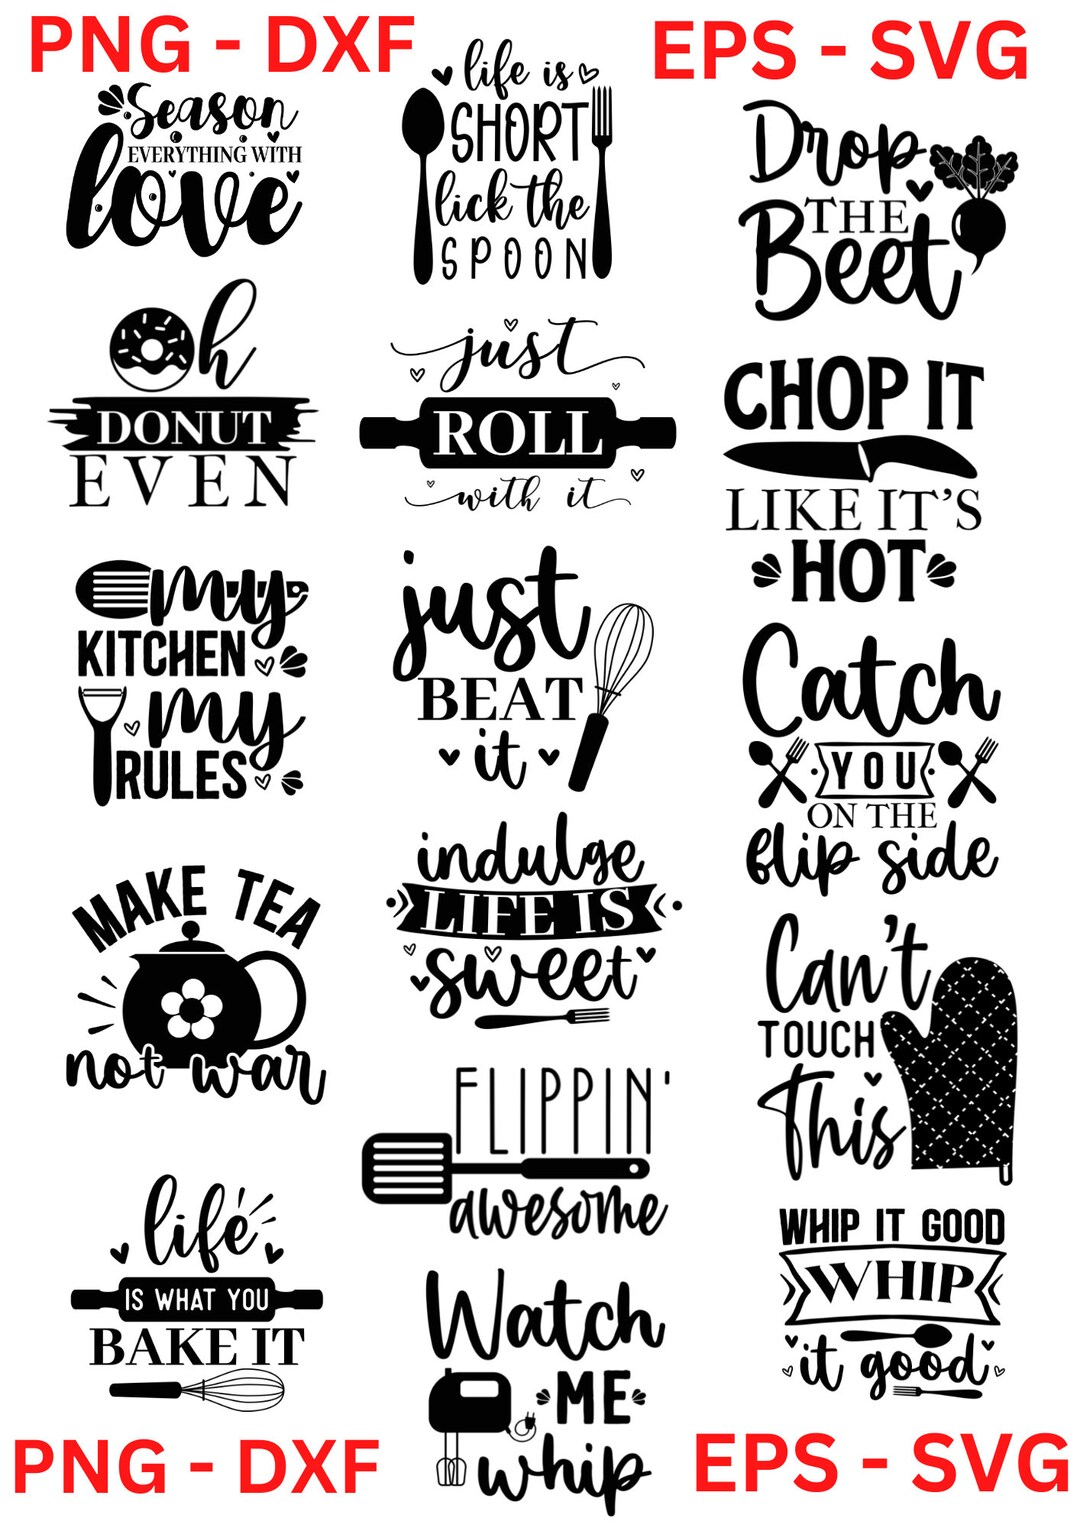 PNG - DXF
EPS - SVG
Season
EVERYTHING WITH
love
life is
SHORT
lick the
SPOON
Drop
THE
Beet
Oh
DONUT
EVEN
just
ROLL
with it
CHOP IT
LIKE IT'S
HOT
my
KITCHEN
my
RULES
just
BEAT
it
Catch
YOU
ON THE
flip side
MAKE TEA
not war
indulge
LIFE IS
sweet
Can't
TOUCH
This
FLIPPIN'
awesome
life
IS WHAT YOU
BAKE IT
Watch
ME
whip
WHIP IT GOOD
WHIP
it good
PNG - DXF
EPS - SVG